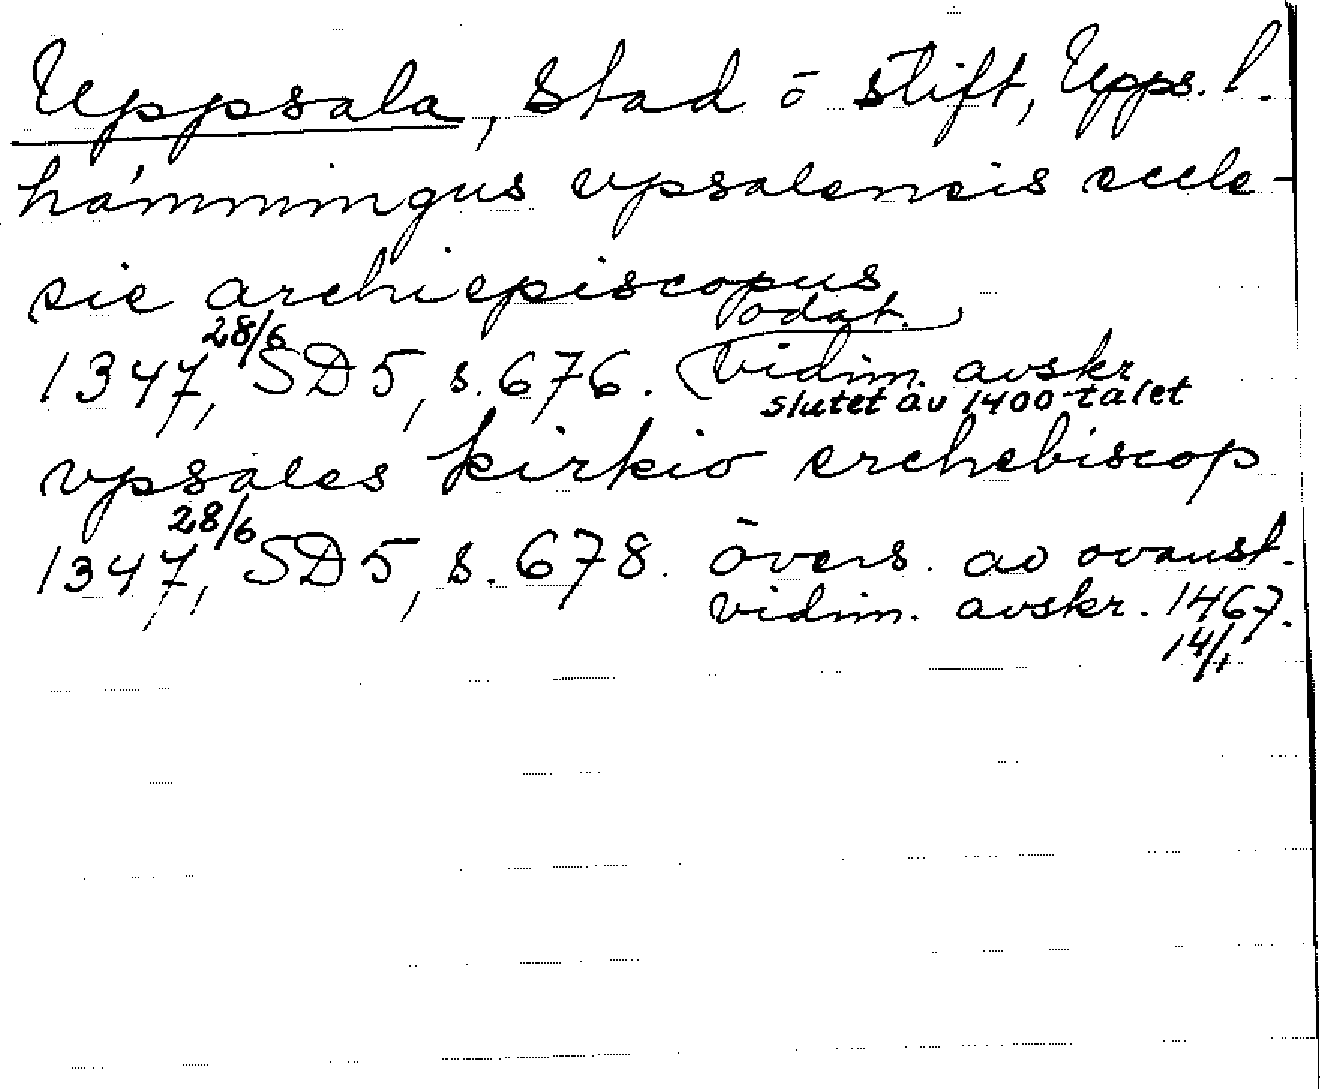 Uppsala, stad o stift, Upps. l.
hámmingus vpsalensis eccle-
sie archiepiscopus
1347, 28/6 SD 5, s. 676. odat. vidim. avskr.
slutet av 1400-talet
vpsales kirkio erchebiscop
1347, 28/6 SD 5, s. 678. övers. av ovanst.
vidim. avskr. 1467.